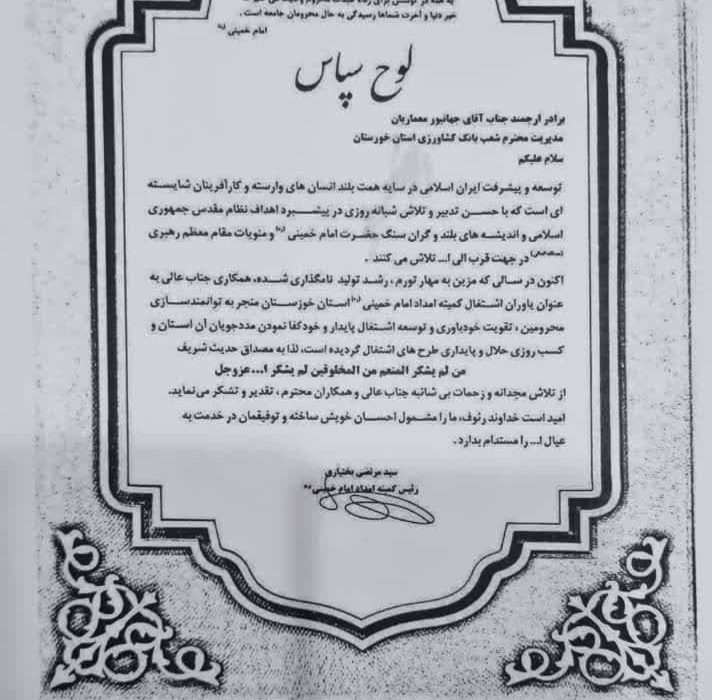 خیر دنیا و آخرت شماها رسیدگی به حال محرومان جامعه است .
امام خمینی (ره)
لوح سپاس
برادر ارجمند جناب آقای جهانپور معماریان
مدیریت محترم شعب بانک کشاورزی استان خوزستان
سلام علیکم
توسعه و پیشرفت ایران اسلامی در سایه همت بلند انسان های وارسته و کارآفرینان شایسته
ای است که با حسن تدبیر و تلاش شبانه روزی در پیشبرد اهداف نظام مقدس جمهوری
اسلامی و اندیشه های بلند و گران سنگ حضرت امام خمینی (ره) و منویات مقام معظم رهبری
در جهت قرب الی ا... تلاش می کنند .
اکنون در سالی که مزین به مهار تورم ، رشد تولید نامگذاری شده، همکاری جناب عالی به
عنوان یاوران اشتغال کمیته امداد امام خمینی (ره) استان خوزستان منجر به توانمندسازی
محرومین ، تقویت خودباوری و توسعه اشتغال پایدار و خودکفا نمودن مددجویان آن استان و
کسب روزی حلال و پایداری طرح های اشتغال گردیده است، لذا به مصداق حدیث شریف
من لم یشکر المنعم من المخلوقین لم یشکر ا... عزوجل
از تلاش مجدانه و زحمات بی شائبه جناب عالی و همکاران محترم ، تقدیر و تشکر می‌نماید.
امید است خداوند رئوف، ما را مشمول احسان خویش ساخته و توفیقمان در خدمت به
عیال ا... را مستدام بدارد .
سید مرتضی بختیاری
رئیس کمیته امداد امام خمینی (ره)